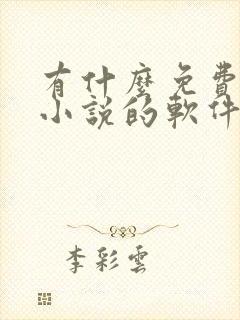 有什麼免費
小說的軟件
李彩雲